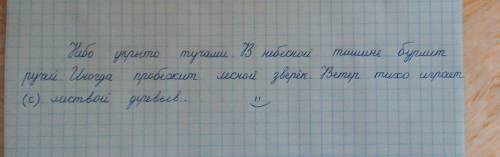 Небо укрыто тучами. В небесной тишине бурлит
ручей. Иногда пробежит лесной зверёк. Ветер тихо играет
(с) листвой деревьев...